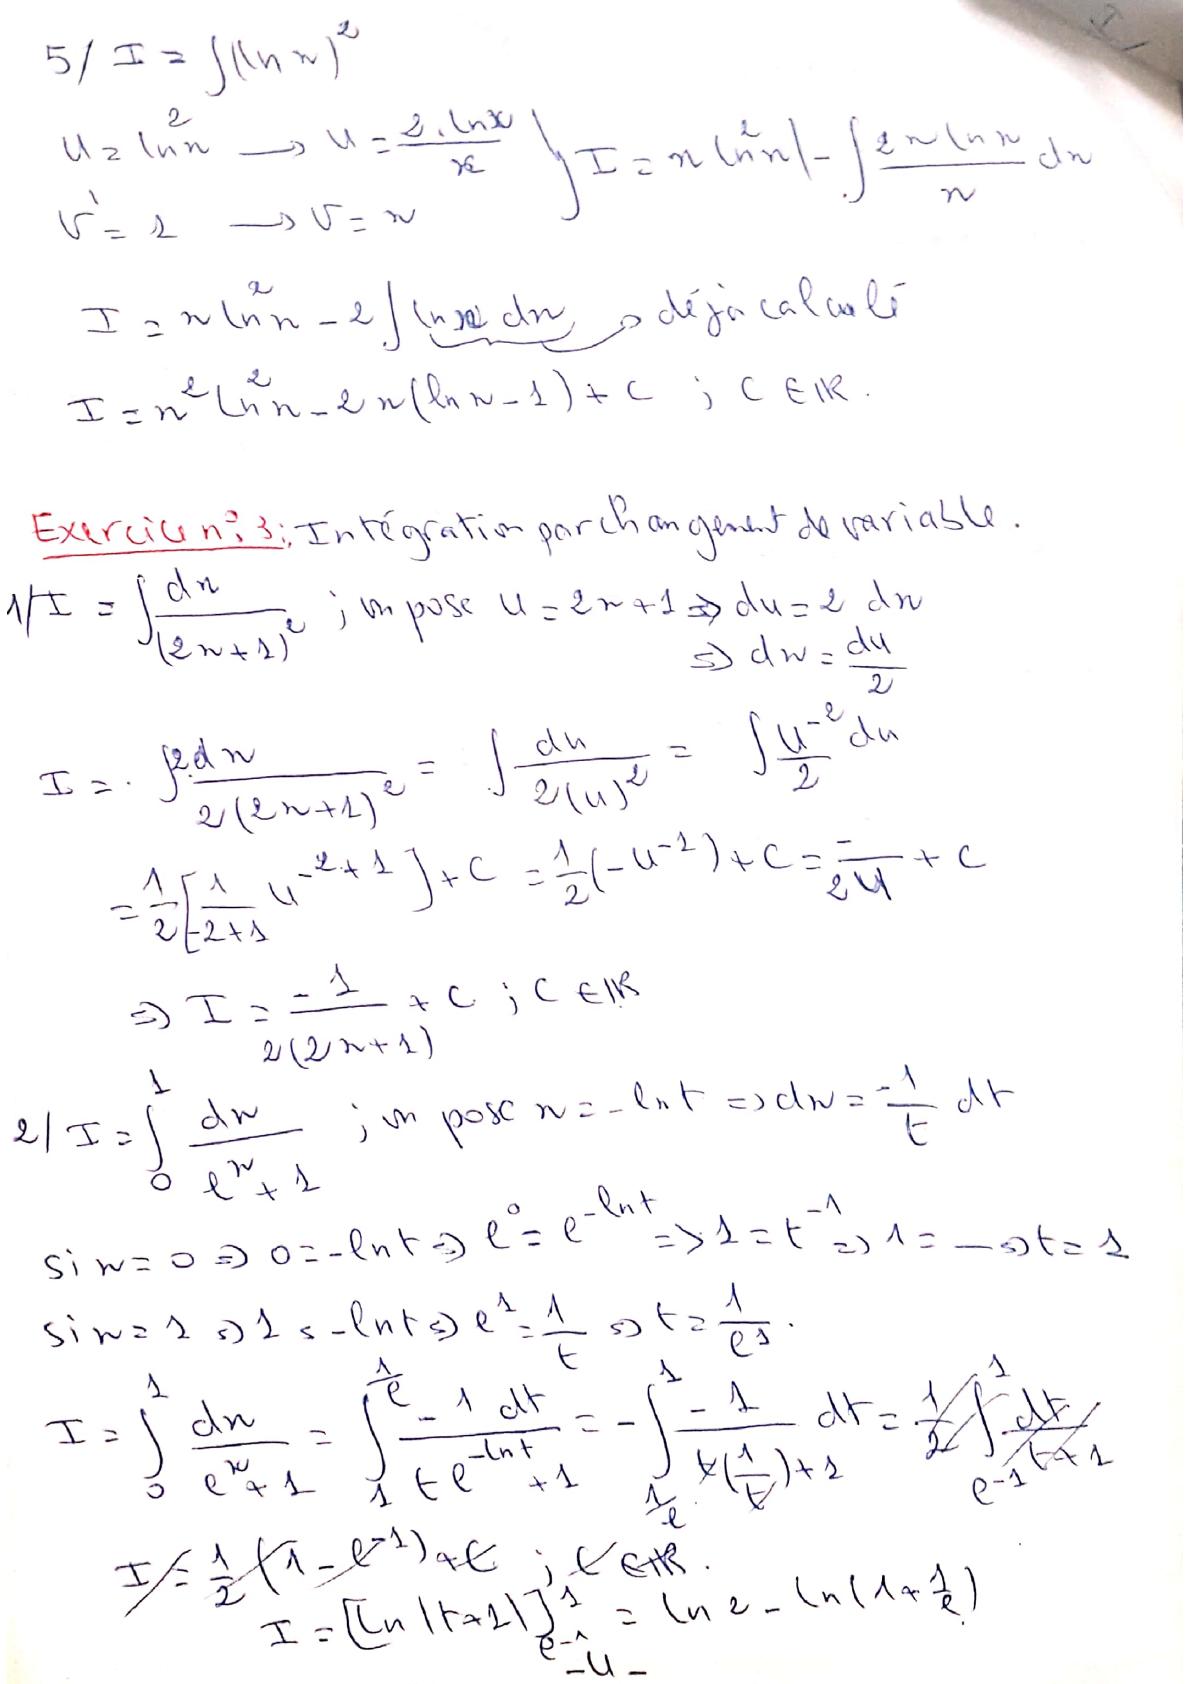 5/ I = ∫(ln x)²
u = ln²x → u = 2.lnx/x } I = x ln²x| - ∫ 2x ln x/x dx
v' = 1 → v = x
I = x ln²x - 2 ∫ ln x dx → déjà calculé
I = x² ln²x - 2x(ln x - 1) + c ; c ∈ IR.
Exercice n° 3: Intégration par changement de variable.
1/ I = ∫ dx/(2x+1)² ; on pose u = 2x+1 ⇒ du = 2 dx
⇒ dx = du/2
I = ∫ 2dx/2(2x+1)² = ∫ du/2(u)² = ∫ u⁻²/2 du
= 1/2 [1/-2+1 u⁻²⁺¹] + C = 1/2 (-u⁻¹) + C = -/2u + C
⇒ I = -1/2(2x+1) + C ; C ∈ IR
2/ I = ∫₀¹ dx/eˣ+1 ; on pose x = -ln t ⇒ dx = -1/t dt
si x = 0 ⇒ 0 = -ln t ⇒ e⁰ = e^-ln t ⇒ 1 = t⁻¹ ⇒ 1 = — ⇒ t = 1
si x = 1 ⇒ 1 = -ln t ⇒ e¹ = 1/t ⇒ t = 1/e¹.
I = ∫₀¹ dx/eˣ+1 = ∫₁^1/e -1 dt/t e^-ln t +1 = -∫_1/e^1 -1/t(1/t)+1 dt = 1/2 ∫_e⁻¹^1 dt/t+1
I = 1/2 (1 - e⁻¹) + C ; C ∈ IR.
I = [ln |t+1|]_e⁻¹^1 = ln 2 - ln(1 + 1/e)
-4-